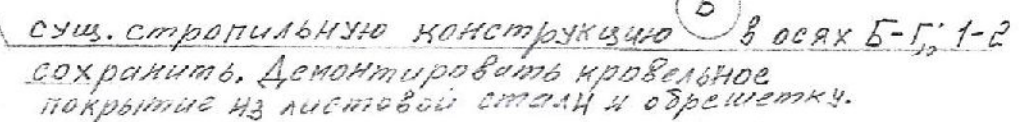 сущ. стропильную конструкцию в осях Б-Г; 1-2
сохранить. Демонтировать кровельное
покрытие из листовой стали и обрешетку.